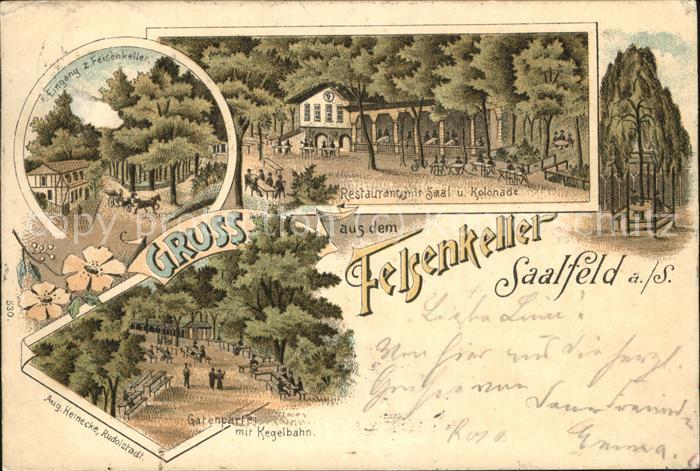 Eingang z. Felsenkeller.
Restaurant mit Saal u. Kolonade.
GRUSS
aus dem
Felsenkeller
Saalfeld a./S.
530.
Gartenpartie
mit Kegelbahn.
Aug. Heinecke, Rudolstadt.
Von hier aus die herzl.
Grüsse von
Rosa
Emma.